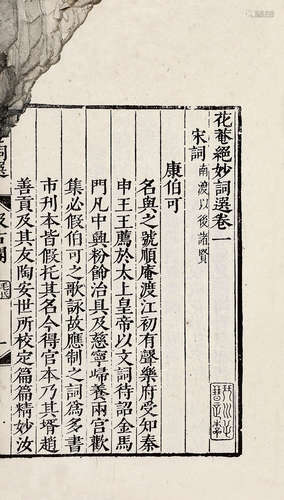 花菴絕妙詞選卷一
宋詞 南渡以後諸賢
康伯可
名與之號順庵渡江初有聲樂府受知秦
申王王薦於太上皇帝以文詞待詔金馬
門凡中興粉飾治具及慈寧歸養兩宮歡
集必假伯可之歌詠故應制之詞爲多書
市刊本皆假托其名今得官本乃其壻趙
善貢及其友陶安世所校定篇篇精妙汝
詞選
卷一
汲古閣